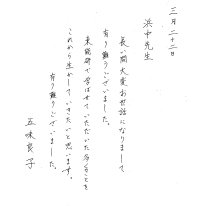 三月二十二日
浜中先生
長い間大変お世話になりまして
有り難うございました。
東総研で学ばせていただいた多くのことを
これから生かしていきたいと思います。
有り難うございました。
五味良子